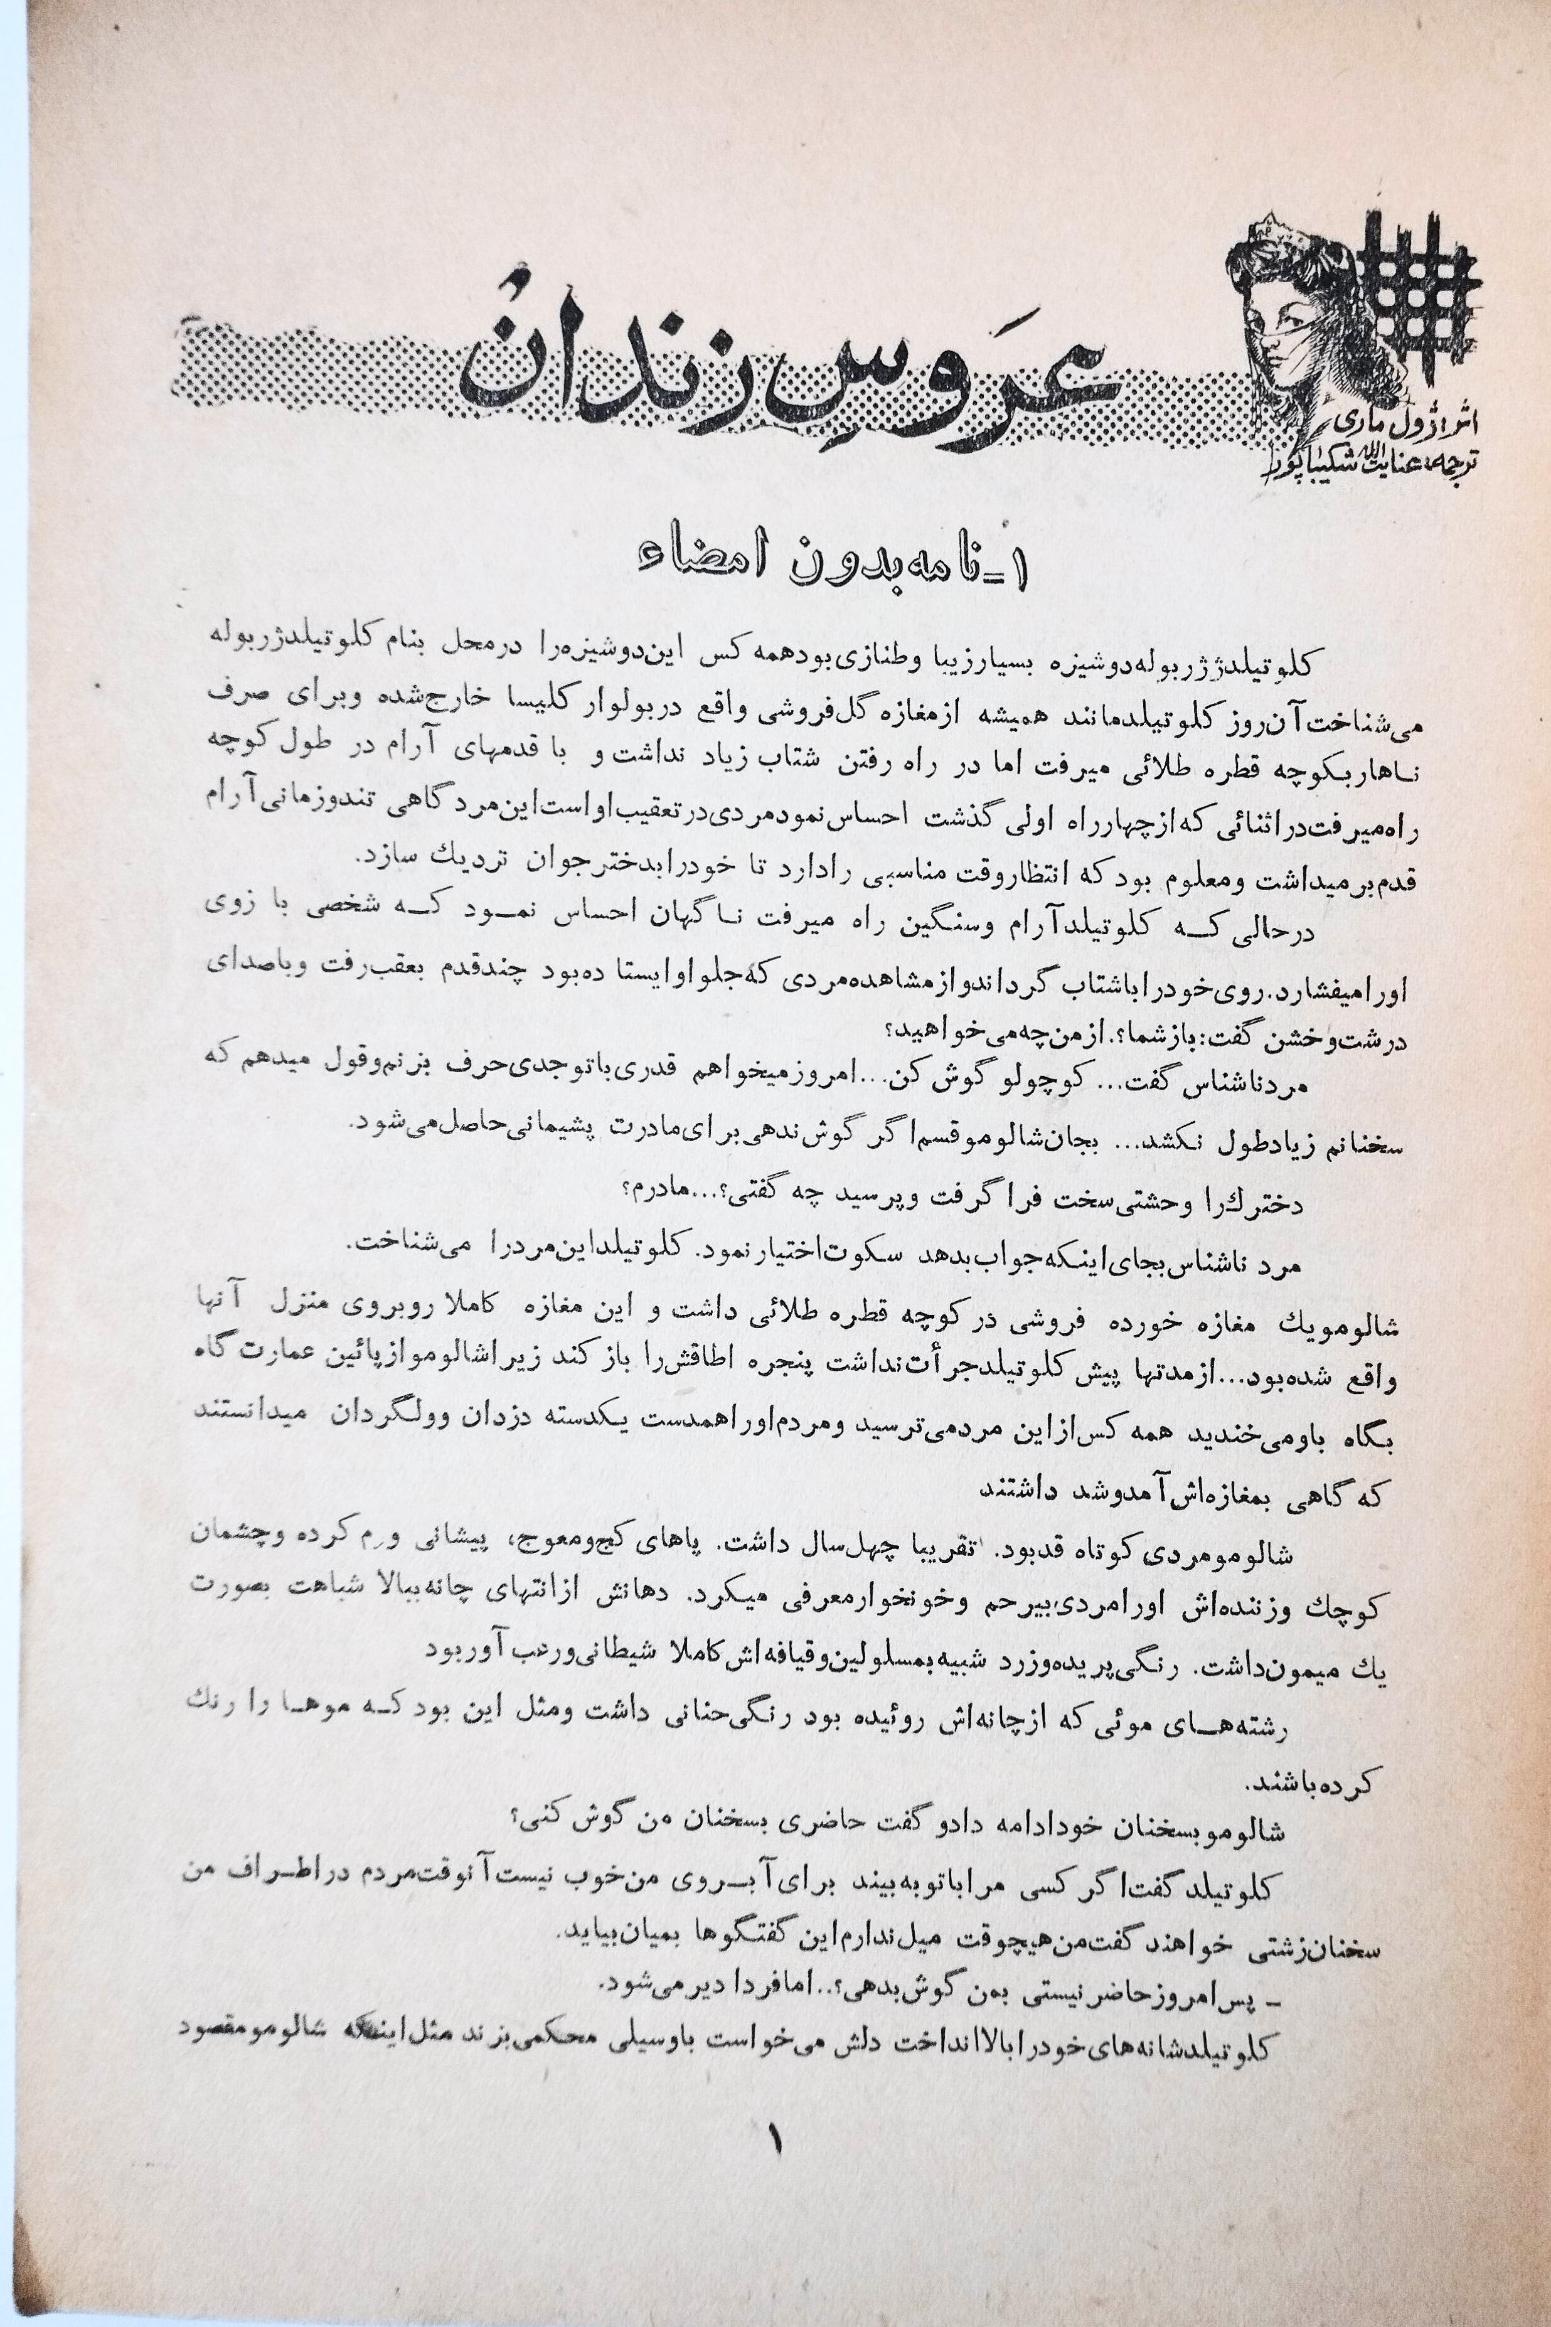 عروس زندان
اثر: ژول ماری
ترجمه: عنایت‌الله شکیباپور
۱ـ نامه بدون امضاء
کلوتیلدژژربوله دوشیزه بسیار زیبا وطنازی بود همه کس این دوشیزه را درمحل بنام کلوتیلدژربوله
می‌شناخت آن‌روز کلوتیلد مانند همیشه ازمغازه گل‌فروشی واقع دربولوار کلیسا خارج‌شده وبرای صرف
ناهار بکوچه قطره طلائی میرفت اما در راه رفتن شتاب زیاد نداشت و با قدمهای آرام در طول کوچه
راه‌میرفت دراثنائی که ازچهارراه اولی گذشت احساس نمود مردی درتعقیب اواست این مرد گاهی تند وزمانی آرام
قدم برمیداشت ومعلوم بود که انتظار وقت مناسبی رادارد تا خودرا بدختر جوان نزدیك سازد.
درحالی کـه کلوتیلد آرام وسنگین راه میرفت ناگهان احساس نمود کـه شخصی با زوی
اورا میفشارد. روی خودرا باشتاب گرداند واز مشاهده مردی که جلو او ایستا ده بود چند قدم بعقب رفت وباصدای
درشت وخشن گفت: بازشما؟. ازمن چه می‌خواهید؟
مرد ناشناس گفت... کوچولو گوش کن... امروز میخواهم قدری باتو جدی حرف بزنم وقول میدهم که
سخنانم زیاد طول نکشد... بجان شالومو قسم اگر گوش ندهی برای مادرت پشیمانی حاصل می‌شود.
دخترك را وحشتی سخت فرا گرفت وپرسید چه گفتی؟... مادرم؟
مرد ناشناس بجای اینکه جواب بدهد سکوت اختیار نمود. کلوتیلد این مردرا می‌شناخت.
شالومو یك مغازه خورده فروشی در کوچه قطره طلائی داشت و این مغازه کاملا روبروی منزل آنها
واقع شده بود... ازمدتها پیش کلوتیلد جرأت نداشت پنجره اطاقش را باز کند زیرا شالومو از پائین عمارت گاه
بگاه باو می‌خندید همه کس ازاین مرد می‌ترسید ومردم اورا همدست یکدسته دزدان وولگردان میدانستند
که گاهی بمغازه‌اش آمدوشد داشتند
شالومو مردی کوتاه قد بود. تقریبا چهل سال داشت. پاهای کج ومعوج، پیشانی ورم کرده وچشمان
کوچك وزننده‌اش اورا مردی بیرحم وخونخوار معرفی میکرد. دهانش ازانتهای چانه ببالا شباهت بصورت
یك میمون داشت. رنگی پریده وزرد شبیه بمسلولین وقیافه‌اش کاملا شیطانی ورعب آور بود
رشته‌هـای موئی که ازچانه‌اش روئیده بود رنگی حنائی داشت ومثل این بود کـه موهـا را رنك
کرده باشند.
شالومو بسخنان خود ادامه داد و گفت حاضری بسخنان من گوش کنی؟
کلوتیلد گفت اگر کسی مرا باتو به بیند برای آبـروی من خوب نیست آنوقت مردم دراطـراف من
سخنان زشتی خواهند گفت من هیچوقت میل ندارم این گفتگوها بمیان بیاید.
ـ پس امروز حاضر نیستی بمن گوش بدهی؟.. اما فردا دیر می‌شود.
کلوتیلد شانه‌های خودرا بالا انداخت دلش می‌خواست باوسیلی محکمی بزند مثل اینکه شالومو مقصود
۱